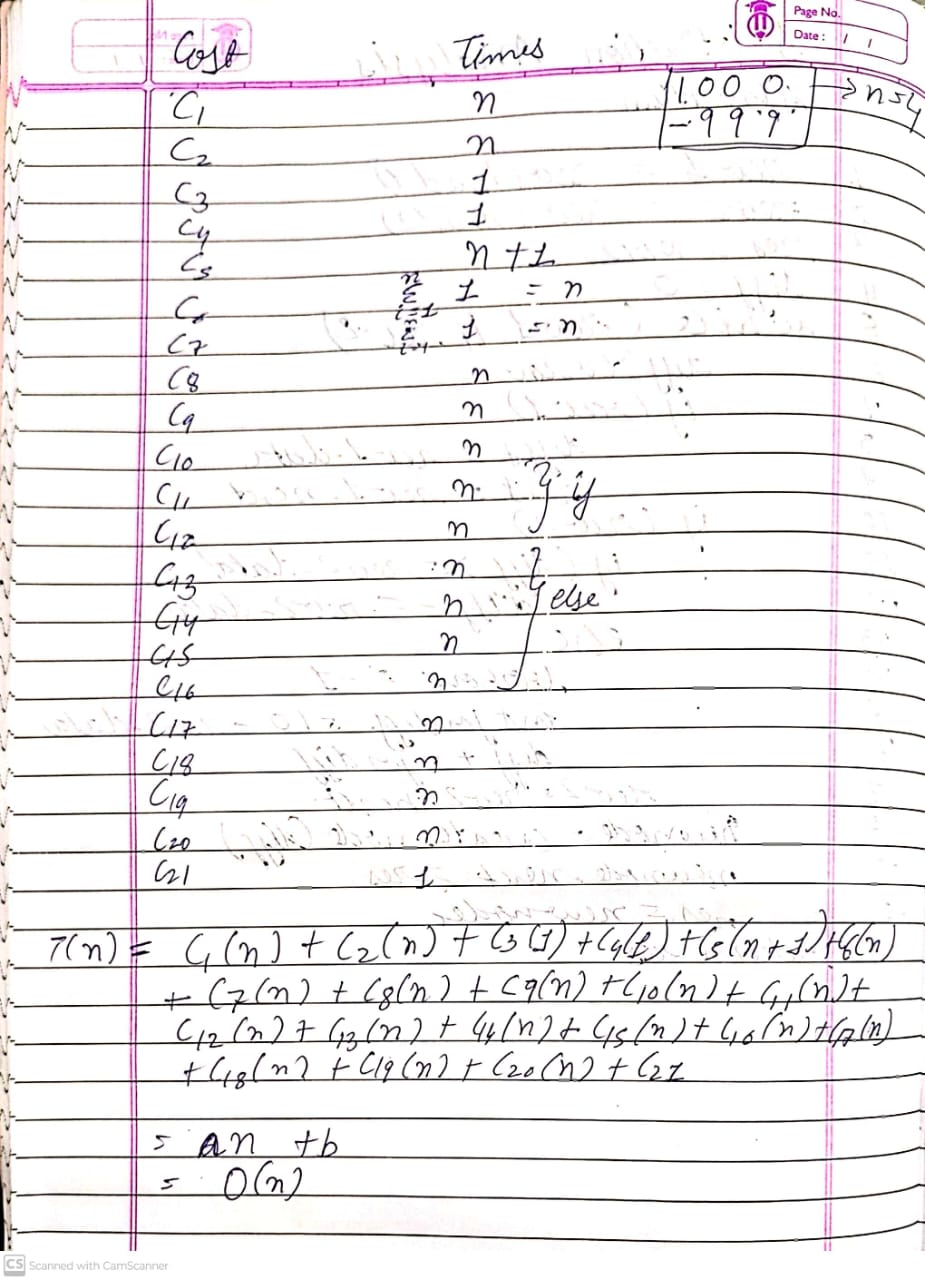 Page No.
Date : / /
Cost Times
C1 n 1000 → n=4
C2 n - 999
C3 1
C4 1
C5 n +1
C6 n Σ i=1 1 = n
C7 n Σ i=1 1 = n
C8 n
C9 n
C10 n
C11 n } if
C12 n
C13 n
C14 n } else
C15 n
C16 n
C17 n
C18 n
C19 n
C20 n
C21 1
T(n) = C1(n) + C2(n) + C3(1) + C4(1) + C5(n+1) + C6(n)
+ C7(n) + C8(n) + C9(n) + C10(n) + C11(n) +
C12(n) + C13(n) + C14(n) + C15(n) + C16(n) + C17(n)
+ C18(n) + C19(n) + C20(n) + C21
= an + b
= O(n)
CS Scanned with CamScanner